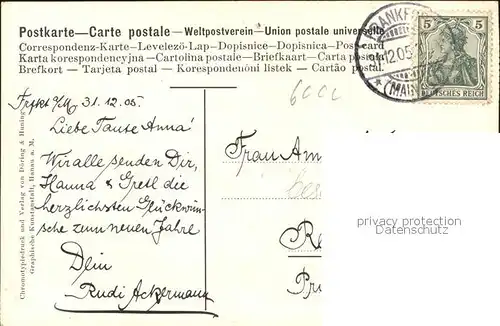 Postkarte—Carte postale—Weltpostverein—Union postale universelle
Correspondenz-Karte—Levelező-Lap—Dopisnice—Dopisnica—Post card
Karta korespondencyjna—Cartolina postale—Briefkaart—Carta posta
Brefkort — Tarjeta postal — Korespondenóni listek — Cartão postal.
FRANKFU
12.05
(MAIN)
5 5
DEUTSCHES REICH
Frfkt a/M 31.12.05.
Liebe Tante Anna!
Wir alle senden Dir,
Hanna & Gretl die
herzlichsten Glückwün-
sche zum neuen Jahre
Dein
Rudi Ackermann
Frau Am
Chromotypiedruck und Verlag von Döring & Huning
Graphische Kunstanstalt, Hanau a. M.
privacy protection
Datenschutz